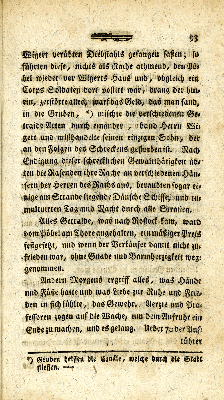 53
Wigert verübten Diebstahls gefangen saßen; so
führten diese, nichts als Rache athmend, den Pö-
bel wieder vor Wigerts Haus und, obgleich ein
Corps Soldaten dort postirt war, drang der hin-
ein, zerstörte alles, warf das Geld, das man fand,
in die Gruben, *) mischte der verschiedenen Ge-
traide Arten durch einander, oband Herrn Wi-
gert und mishandelte seinen einzigen Sohn, der
an den Folgen des Schreckens gefährlich starb. Nach
Endigung dieser schrecklichen Gewaltthätigkeit übe-
ten die Rasenden ihre Rache an verschiedenen Häu-
sern der Herren des Raths aus, beraubten sogar ei-
nige am Strande liegende Dänische Schiffe, und tu-
multuirten Tag und Nacht durch alle Straßen.
Alles Getraide, was nach Rostock kam, ward
vom Pöbel am Thore angehalten, ein mäßiger Preiß
festgesetzt, und wenn der Verkäufer damit nicht zu-
frieden war, ohne Gnade und Barmherzigkeit weg-
genommen.
Andern Morgens ergriff alles, was Hände
und Füße hatte und was Liebe zur Ruhe und Frie-
den in sich fühlte, das Gewehr. Aerzte und Pro-
fessoren zogen auf die Wache, um dem Aufruhr ein
Ende zu machen, und es gelang. Ueber 70 der Auf-
rührer
*) Gruben heißen die Canäle, welche durch die Stadt
fließen.